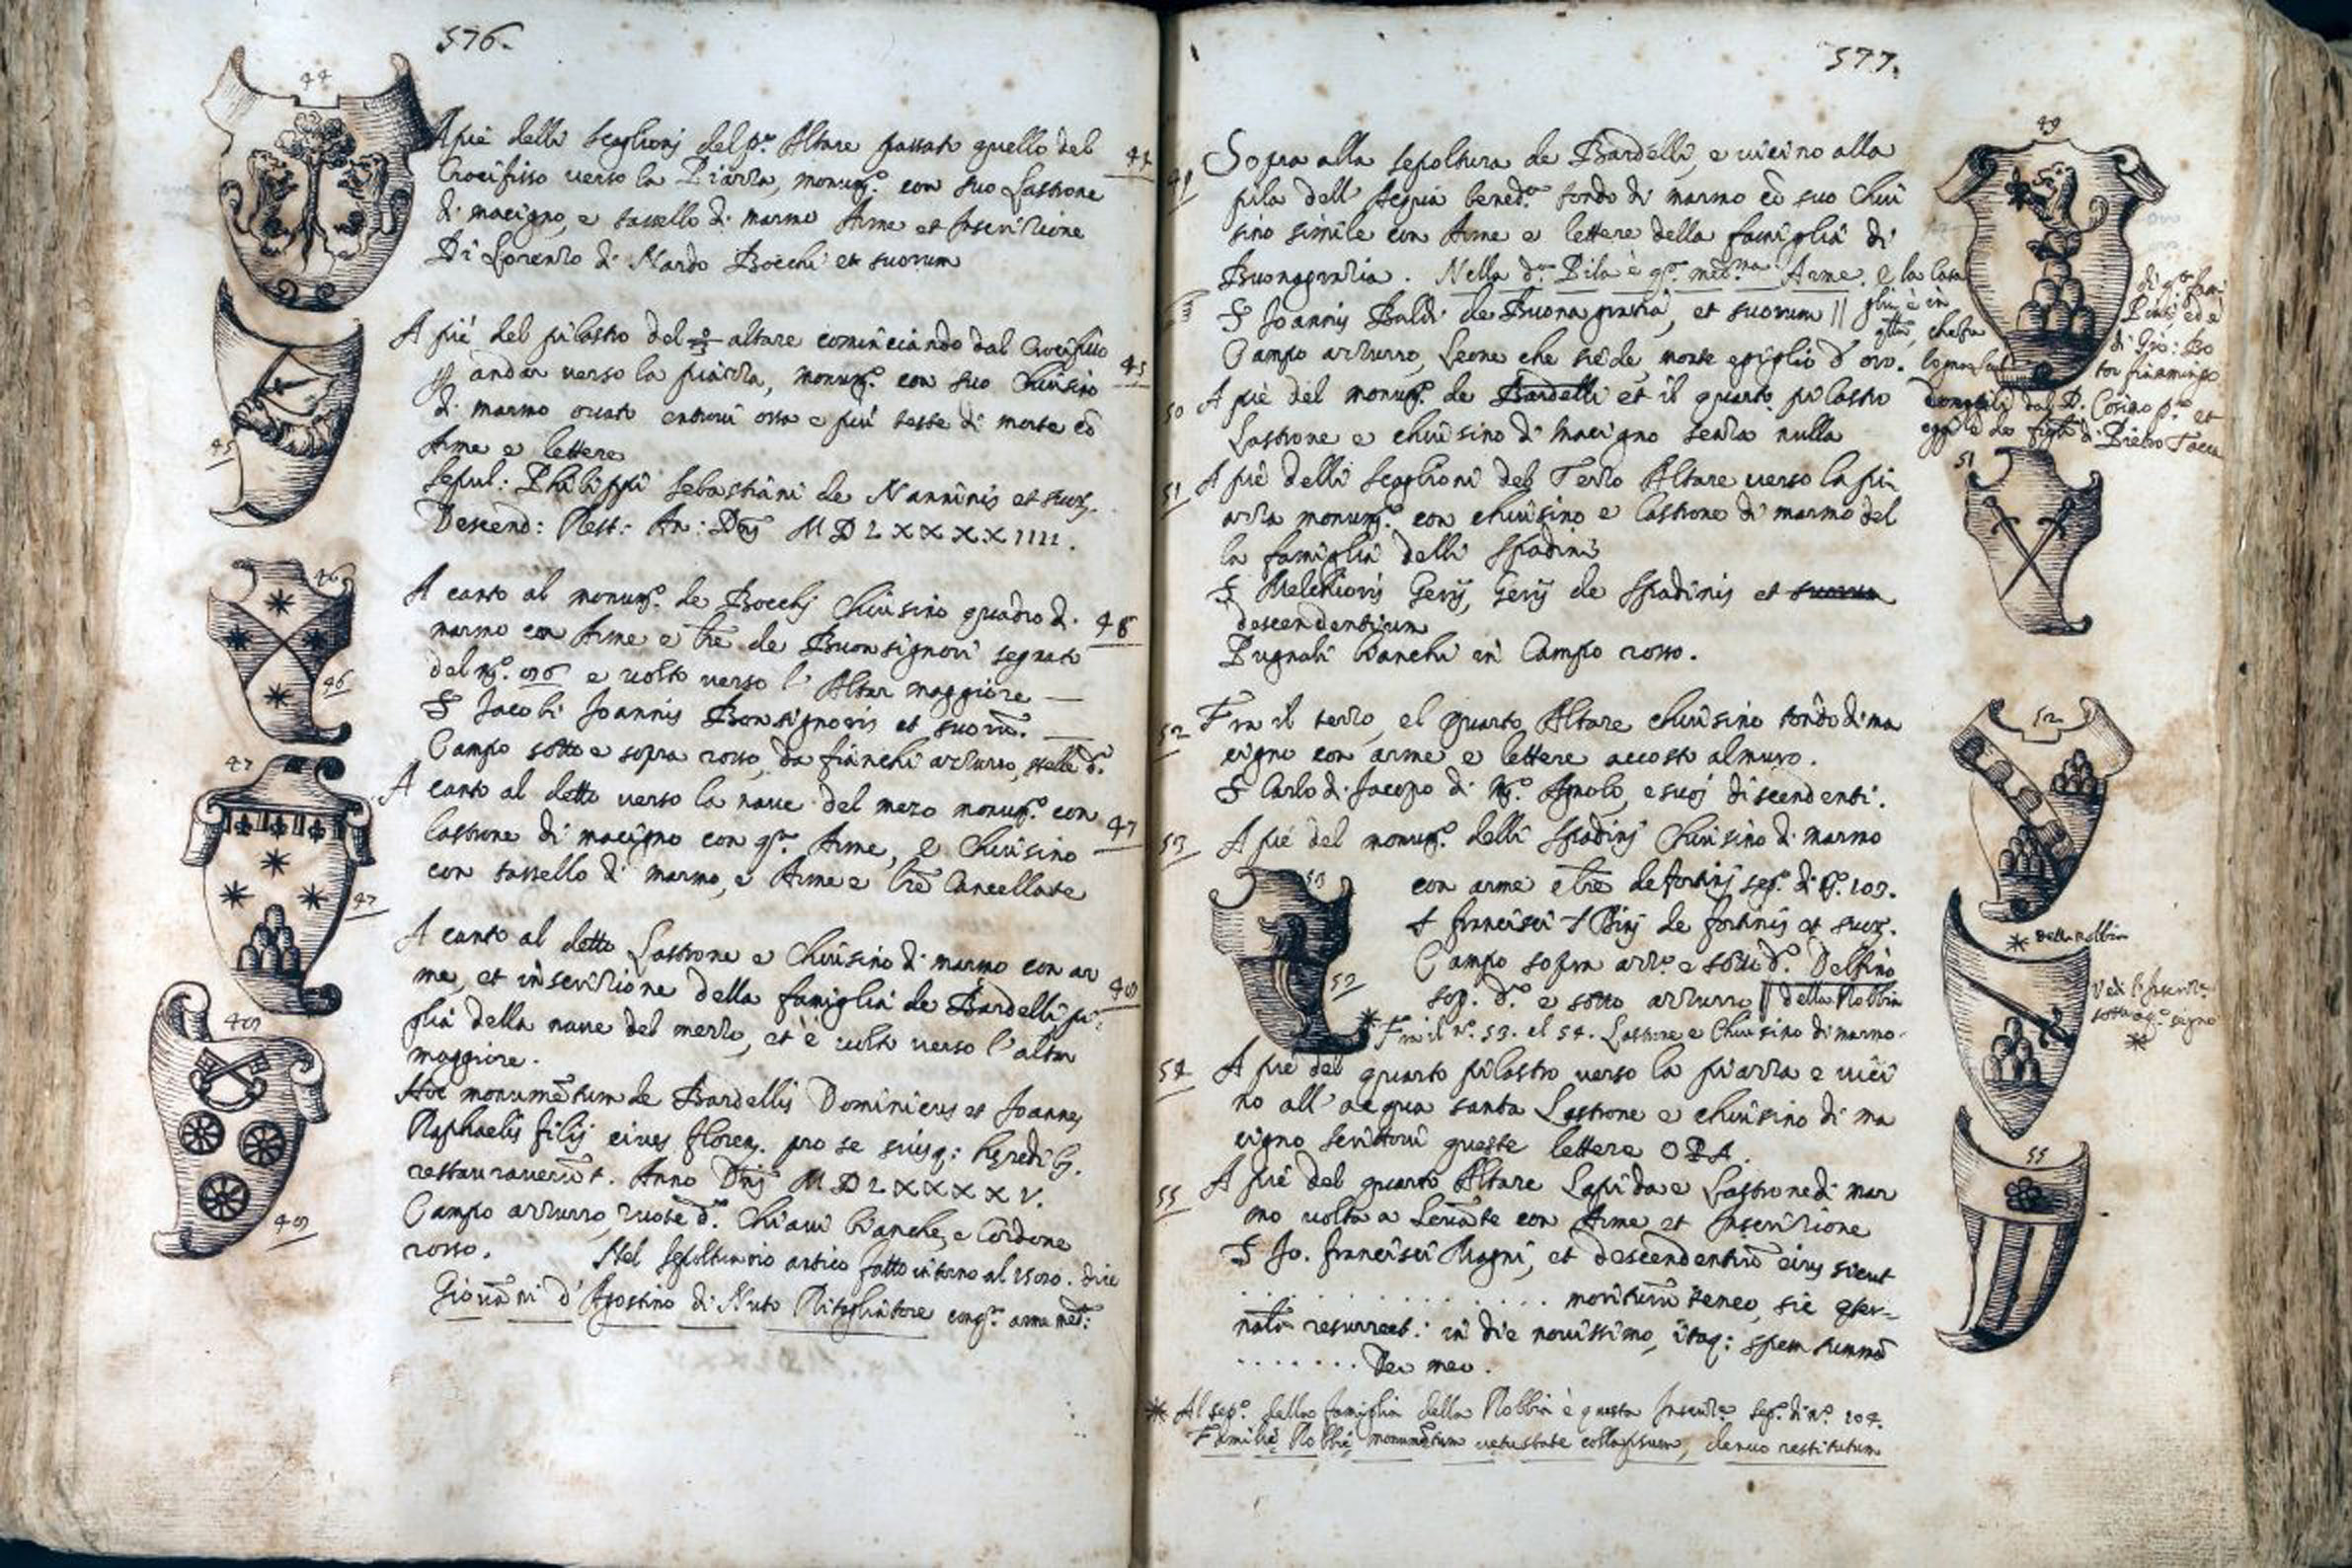 576.
44
A pié delli scaglioni del po. Altare passato quello del
Crocifisso verso la Piazza, monumo. con suo Lastrone
di macigno, e tassello di marmo Arme et Inscrizione
Di Lorenzo di Nardo Bocchi et suorum
44
A pié del pilastro del altare cominciando dal Crocifisso
andar verso la piazza, monumo. con suo Chiusino
di marmo ovato entrovi ossa e piu teste di morte cō
Arme e lettere
Sepul: Philippi Sebastiani de Nanninis et suor.
Descend: Rest: An: Dnj MDLXXXXIIII.
45
45
A canto al monumo. de Bocchj Chiusino quadro di
marmo con Arme e lre de Buonsignori segnato
del No. 96 e volto verso l'Altar maggiore
S Jacobi Joannis Bonsignoris et suorū.
Campo sotto e sopra rosso, da fianchi azzurro, stelle d.
46
46
46
A canto al detto verso la nave del mezo monumo. con
lastrone di macigno con qta. Arme, e Chiusino
con tassello di marmo, e Arme e lre Cancellate
47
47
47
A canto al detto Lastrone e Chiusino di marmo con ar
me, et inscrizione della famiglia de Bardelli pi:
glia della nave del mezzo, et è volto verso l'altar
maggiore.
Hoc monumētum de Bardellis Dominicus et Joannes
Raphaelis filij cives floren. pro se suisq: heredib.
restauraverūt. Anno Dnj MDLXXXXV.
Campo azzurro, ruote d. Chiavi bianche, e Cordone
rosso. Nel sepoltuario antico fatto intorno al dice
Giovāni d'Agostino di Nuto Ritagliatore congta. arma med:
577.
49
Sopra alla sepoltura de Bardelli, e vicino alla
pila dell'Acqua beneda. tondo di marmo cō suo Chiu
sino simile con Arme e lettere della famiglia di
Buonagrazia. Nella da. Pila è qa. medma. Arme, e la Casa
S Joannis Baldi de Buonagratia, et suorum ||
Campo azzurro, Leone che siede, monte e giglio d'oro.
49
50
A pié del monumo. de Bardelli et il quarto pilastro
Lastrone e chiusino di macigno senza nulla
51
A pié delli scaglioni del Terzo Altare verso la pia
azza monumo. con chiusino e lastrone di marmo del
la famiglia delli Spadini
S Melchioris Gerij, Gerij de Spadinis et suorum
descendentium
Pugnali bianchi in Campo rosso.
51
52
Fra il terzo, el quarto Altare chiusino tondo di ma
cigno con arme e lettere accosto al muro.
S Carlo di Jacopo di Mo. Agnolo, e suoj discendenti.
52
53
A pié del monumo. delli Spadinj Chiusino di marmo
con arme e lre de fortinj sego. di No. 103.
S francisci de fortinis et suor.
Campo sopra azzo. e sotto do. Delfino
sop. do. e sotto azzurro || della Robbia
53
53
* Fra il No. 53. el 54. Lastrone e Chiusino di marmo.
* della Robbia
Vedi l'Inscrizne.
sotto qo. segno
*
54
A pié del quarto pilastro verso la piazza e vici
no all'acqua santa Lastrone e chiusino di ma
cigno scrittovi queste lettere OPA.
55
A pié del quarto Altare Lapida e Lastrone di mar
mo volta a Levāte con Arme et Inscrizione
S Jo. francisci Magni, et descendentiū eius sicut
. . . . . . . . . . moriturū teneo, sic
resurrect: in die novissimo, itaq: spem summā
. . . . . . . Deo meo.
55
* Al sepo. della famiglia della Robbia è questa Inscrizne. sego. di No. 104.
Familie Robbie monumētum vetustate collapsum, denuo restitutum